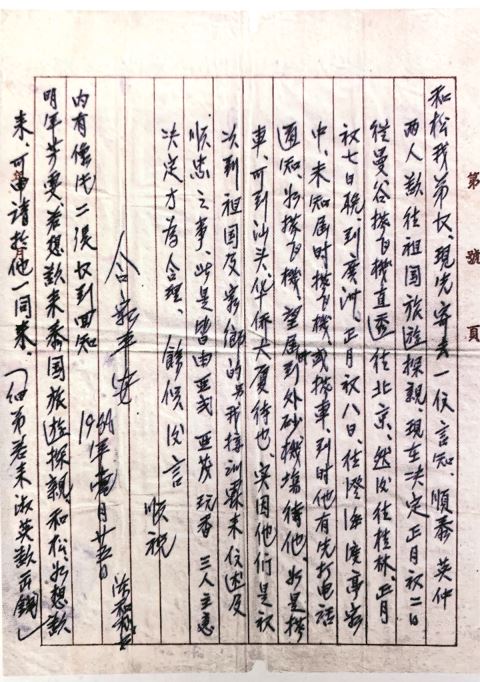 第 號 頁
和松我弟収、現先寄去一份言知、順泰 英仲
两人欵往祖国旅游探親、现在决定正月初二日
從曼谷搭飞機直透往北京、然后往桂林、正月
初七日晚到廣洲、正月初八日、往澄海渡亭寨
中、未知届时搭飞機或搭車、到时他有先打电话
通知、如搭飞機、望届时到外砂機場待他、如是搭
車、可到汕头、华侨大夏待他、实因他们是初
次到祖国及家鄉的、另我接訓豪来信述及
顺忠之事、此是皆由亚武 亚茂 玩香 三人主意
决定才为合理、餘候后言
順祝
合家平安
1986年 月廿五日
内有侨代二張収到回知
明年芳要、若想欵来泰国旅遊探親 和松、如想欵
来、可申请於他一同来、(细弟若来淑英欵石錢)